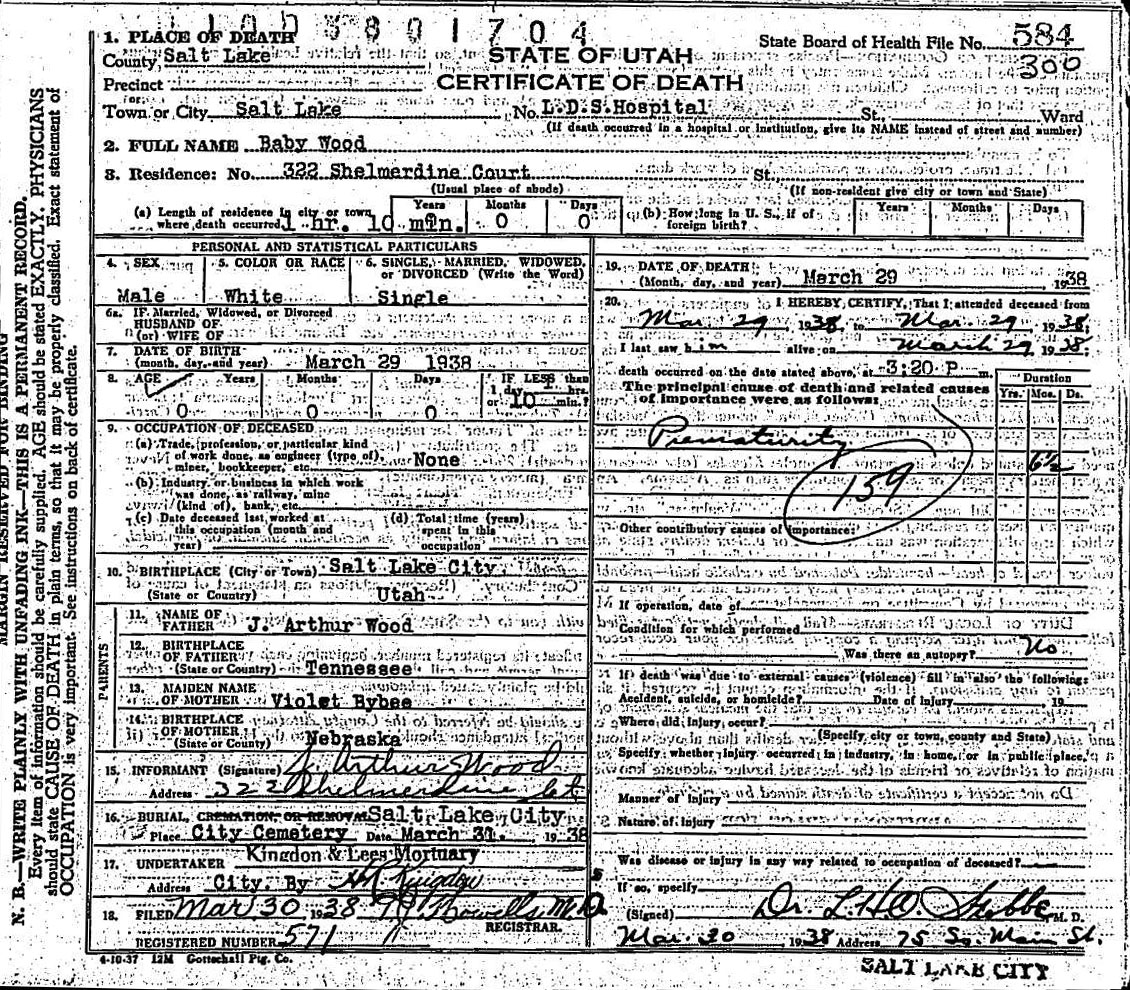 1 0 0 3 8 0 1 7 0 4
1. PLACE OF DEATH
County Salt Lake
STATE OF UTAH
State Board of Health File No. 584
300
Precinct
CERTIFICATE OF DEATH
or
Town or City Salt Lake No. L.D.S.Hospital St., Ward
(If death occurred in a hospital or institution, give its NAME instead of street and number)
2. FULL NAME Baby Wood
3. Residence: No. 322 Shelmerdine Court St.
(Usual place of abode)
(If non-resident give city or town and State)
(a) Length of residence in city or town where death occurred 1 hr. 10 min.
Years Months Days
0 0
(b) How long in U. S., if of foreign birth?
Years Months Days
PERSONAL AND STATISTICAL PARTICULARS
4. SEX 5. COLOR OR RACE 6. SINGLE, MARRIED, WIDOWED, or DIVORCED (Write the Word)
Male White Single
6a. If Married, Widowed, or Divorced
HUSBAND OF
(or) WIFE OF
7. DATE OF BIRTH
(month, day, and year) March 29 1938
8. AGE Years Months Days IF LESS than
1 day hrs.
0 0 0 or 10 min.?
9. OCCUPATION OF DECEASED
(a) Trade, profession, or particular kind
of work done, as engineer (type of),
miner, bookkeeper, etc. None
(b) Industry or business in which work
was done, as railway, mine
(kind of), bank, etc.
(c) Date deceased last worked at
this occupation (month and
year)
(d) Total time (years)
spent in this
occupation
10. BIRTHPLACE (City or Town) Salt Lake City
(State or Country) Utah
PARENTS
11. NAME OF
FATHER J. Arthur Wood
12. BIRTHPLACE
OF FATHER
(State or Country) Tennessee
13. MAIDEN NAME
OF MOTHER Violet Bybee
14. BIRTHPLACE
OF MOTHER
(State or Country) Nebraska
15. INFORMANT (Signature) J. Arthur Wood
Address 322 Shelmerdine Ct
16. BURIAL, CREMATION, OR REMOVAL Salt Lake City
Place City Cemetery Date March 31. 1938
17. UNDERTAKER Kingdon & Lees Mortuary
Address City. By
18. FILED Mar 30 1938 M.D.
REGISTRAR.
REGISTERED NUMBER 571
4-10-37 12M Gottschall Ptg. Co.
19. DATE OF DEATH
(Month, day, and year) March 29 1938
20. I HEREBY CERTIFY, That I attended deceased from
Mar. 29 1938, to Mar. 29 1938;
I last saw him alive on March 29 1938;
death occurred on the date stated above, at 3:20 P m.
The principal cause of death and related causes
of importance were as follows:
Duration
Yrs. Mos. Ds.
Prematurity
6½
159
Other contributory causes of importance:
If operation, date of
Condition for which performed
Was there an autopsy? No
If death was due to external causes (violence) fill in also the following:
Accident, suicide, or homicide? Date of injury 19
Where did injury occur?
(Specify city or town, county and State)
Specify whether injury occurred in industry, in home, or in public place,
Manner of injury
Nature of injury
Was disease or injury in any way related to occupation of deceased?
If so, specify
(Signed) Dr. L.H.O. Stobbe M. D.
Mar. 30 1938 Address 75 So. Main St.
SALT LAKE CITY
MARGIN RESERVED FOR BINDING
N. B.—WRITE PLAINLY WITH UNFADING INK—THIS IS A PERMANENT RECORD.
Every item of information should be carefully supplied. AGE should be stated EXACTLY. PHYSICIANS
should state CAUSE OF DEATH in plain terms, so that it may be properly classified. Exact statement of
OCCUPATION is very important. See instructions on back of certificate.